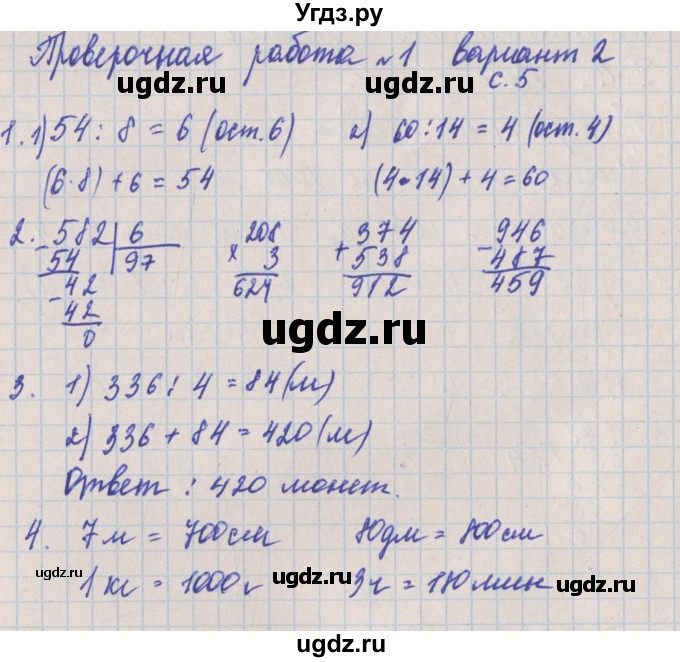 Угдз.ру
Проверочная работа №1 вариант 2
ugdz.ru ugdz.ru
с. 5
1. 1) 54 : 8 = 6 (ост. 6) 2) 60 : 14 = 4 (ост. 4)
(6·8) + 6 = 54 (4·14) + 4 = 60
2. - 582 | 6 208 374 946
54 | 97 x 3 + 538 - 487
- 42 624 912 459
42
0
ugdz.ru
3. 1) 336 : 4 = 84 (м)
2) 336 + 84 = 420 (м)
ugdz.ru
Ответ : 420 монет.
4. 7 м = 700 см 80 дм = 800 см
ugdz.ru ugdz.ru ugdz.ru
1 кг = 1000 г 3 ч = 180 мин
ugdz.ru